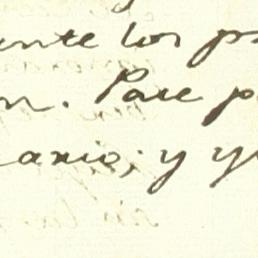 ante los p
n. Pase p
ario; y y